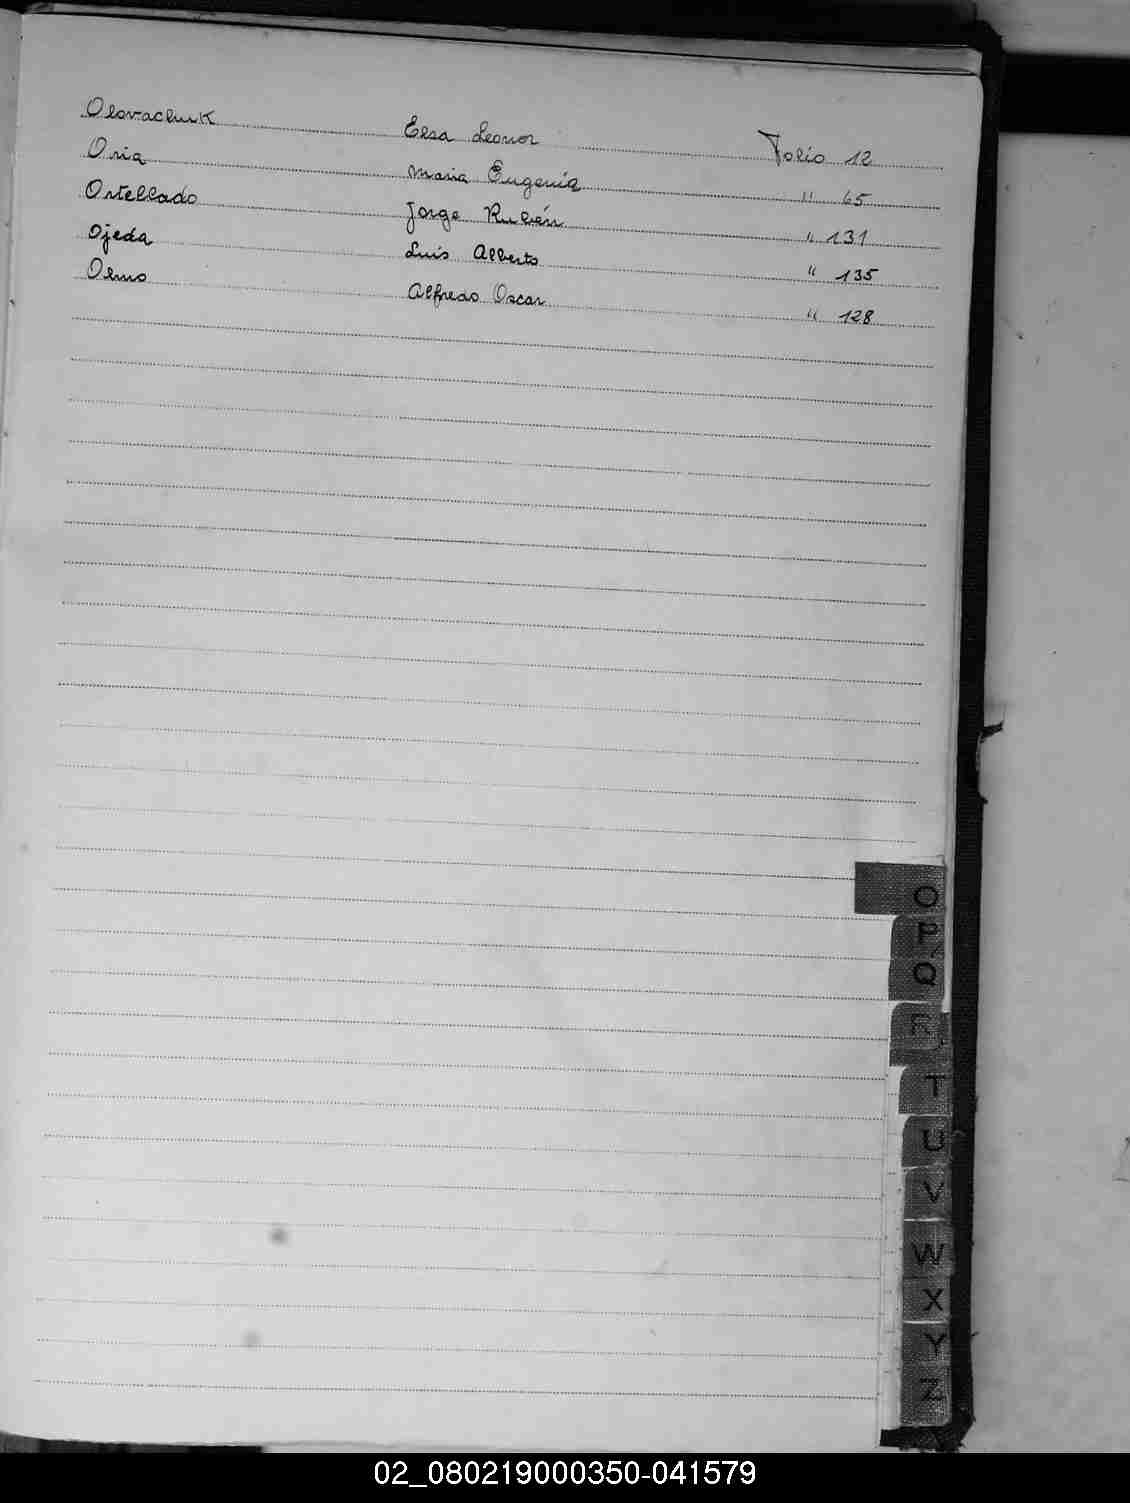 Olovachuk Elsa Leonor Folio 12
Oria Maria Eugenia " 65
Ortellado Jorge Rubén " 131
Ojeda Luis Alberto " 135
Olmo Alfredo Oscar " 128
O
P
Q
R
T
U
V
W
X
Y
Z
02_080219000350-041579